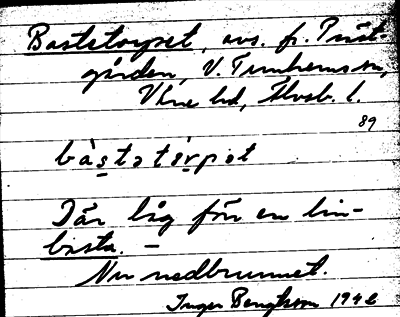 Bastetorpet, avs. fr. Präst-
gården, V. Tunhems sn,
Väne hd, Älvsb. l.
89
bàstetórpet
Där låg förr en lin-
basta. –
Nu nedbrunnet.
Inger Bengtsson 1942